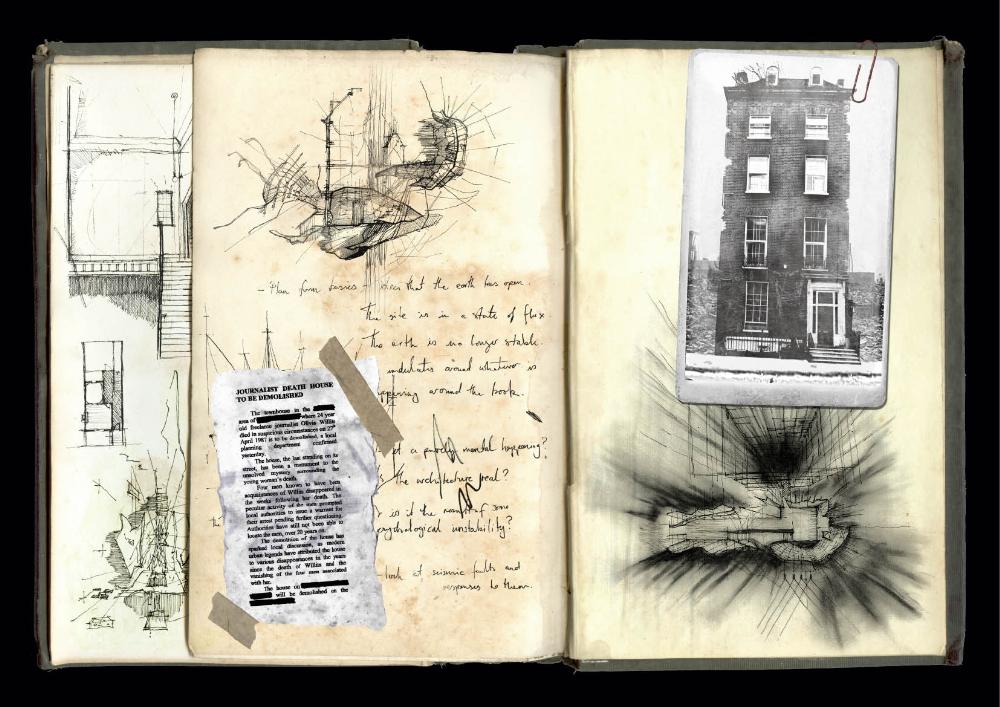 - Plan form arises - idea that the earth has open.
The site is in a state of flux.
The earth is no longer stable.
undulates around whatever is
happening around the book.
a purely mental happening?
the architecture real?
is it the result of some
psychological instability?
look at seismic faults and
responses to them.
JOURNALIST DEATH HOUSE
TO BE DEMOLISHED
The townhouse in the
area of where 24 year
old freelance journalist Olivia Willis
died in suspicious circumstances on 27th
April 1981 is to be demolished, a local
planning department confirmed
yesterday.
The house, the last standing on its
street, has been a monument to the
unsolved mystery surrounding the
young woman's death.
Four men known to have been
acquaintances of Willis disappeared in
the weeks following her death. The
peculiar activity of the men prompted
local authorities to issue a warrant for
their arrest pending further questioning.
Authorities have still not been able to
locate the men, over 20 years on.
The demolition of the house has
sparked local discussion, as modern
urban legends have attributed the house
to various disappearances in the years
since the death of Willis and the
vanishing of the four men associated
with her.
The house on
will be demolished on the